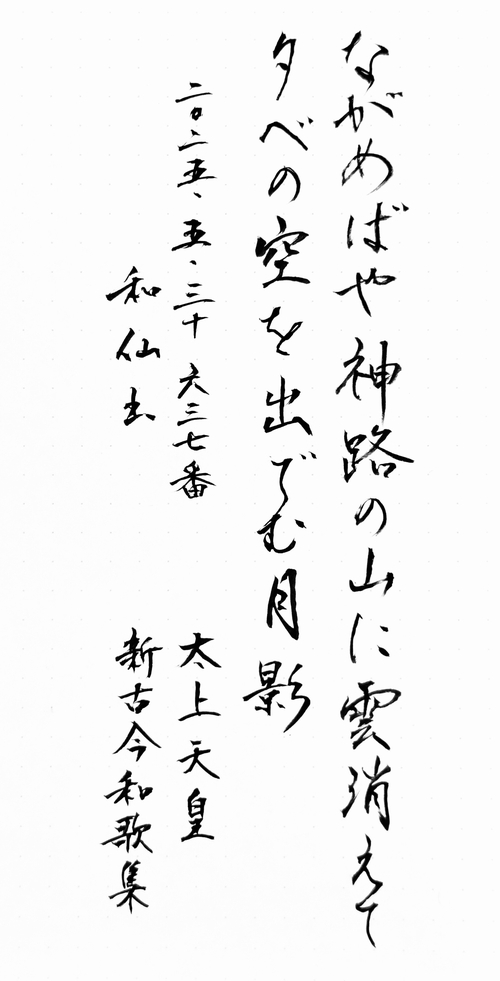 ながめばや神路の山に雲消えて
夕べの空を出でむ月影
二〇二五、五、三十 六三七番 太上天皇
和仙 新古今和歌集